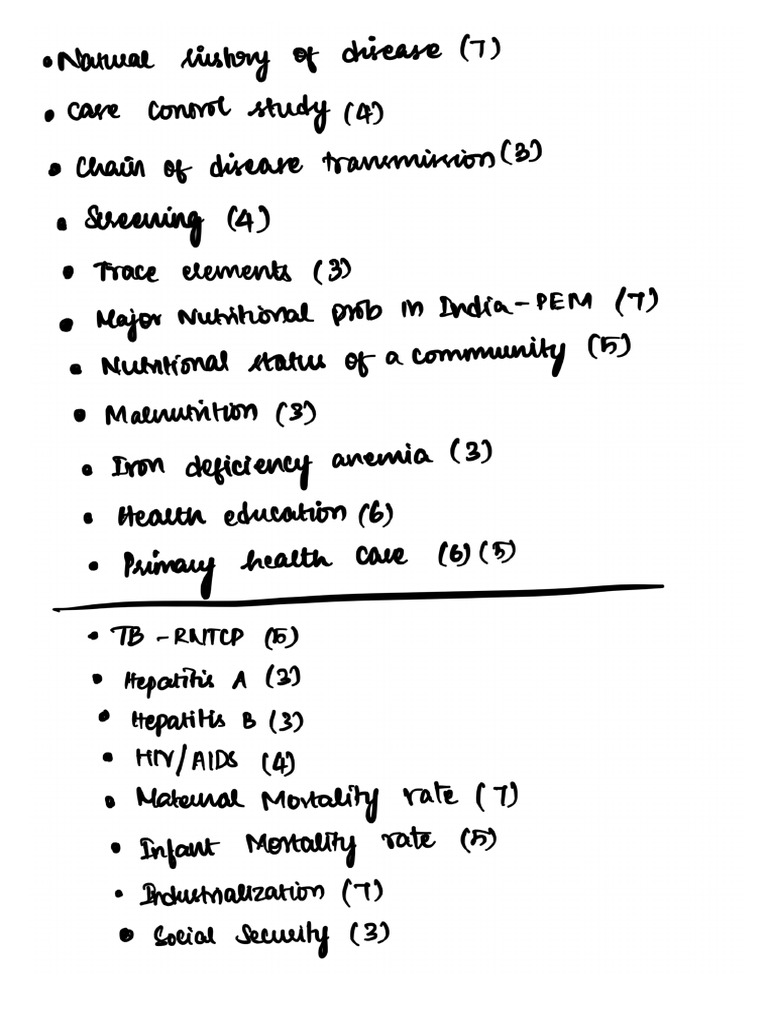 • Natural history of disease (7)
• Case Control study (4)
• Chain of disease transmission (3)
• Screening (4)
• Trace elements (3)
• Major Nutritional prob in India - PEM (7)
• Nutritional status of a community (5)
• Malnutrition (3)
• Iron deficiency anemia (3)
• Health education (6)
• Primary health care (6) (5)
• TB - RNTCP (5)
• Hepatitis A (3)
• Hepatitis B (3)
• HIV/AIDS (4)
• Maternal Mortality rate (7)
• Infant Mortality rate (5)
• Industrialization (7)
• Social Security (3)